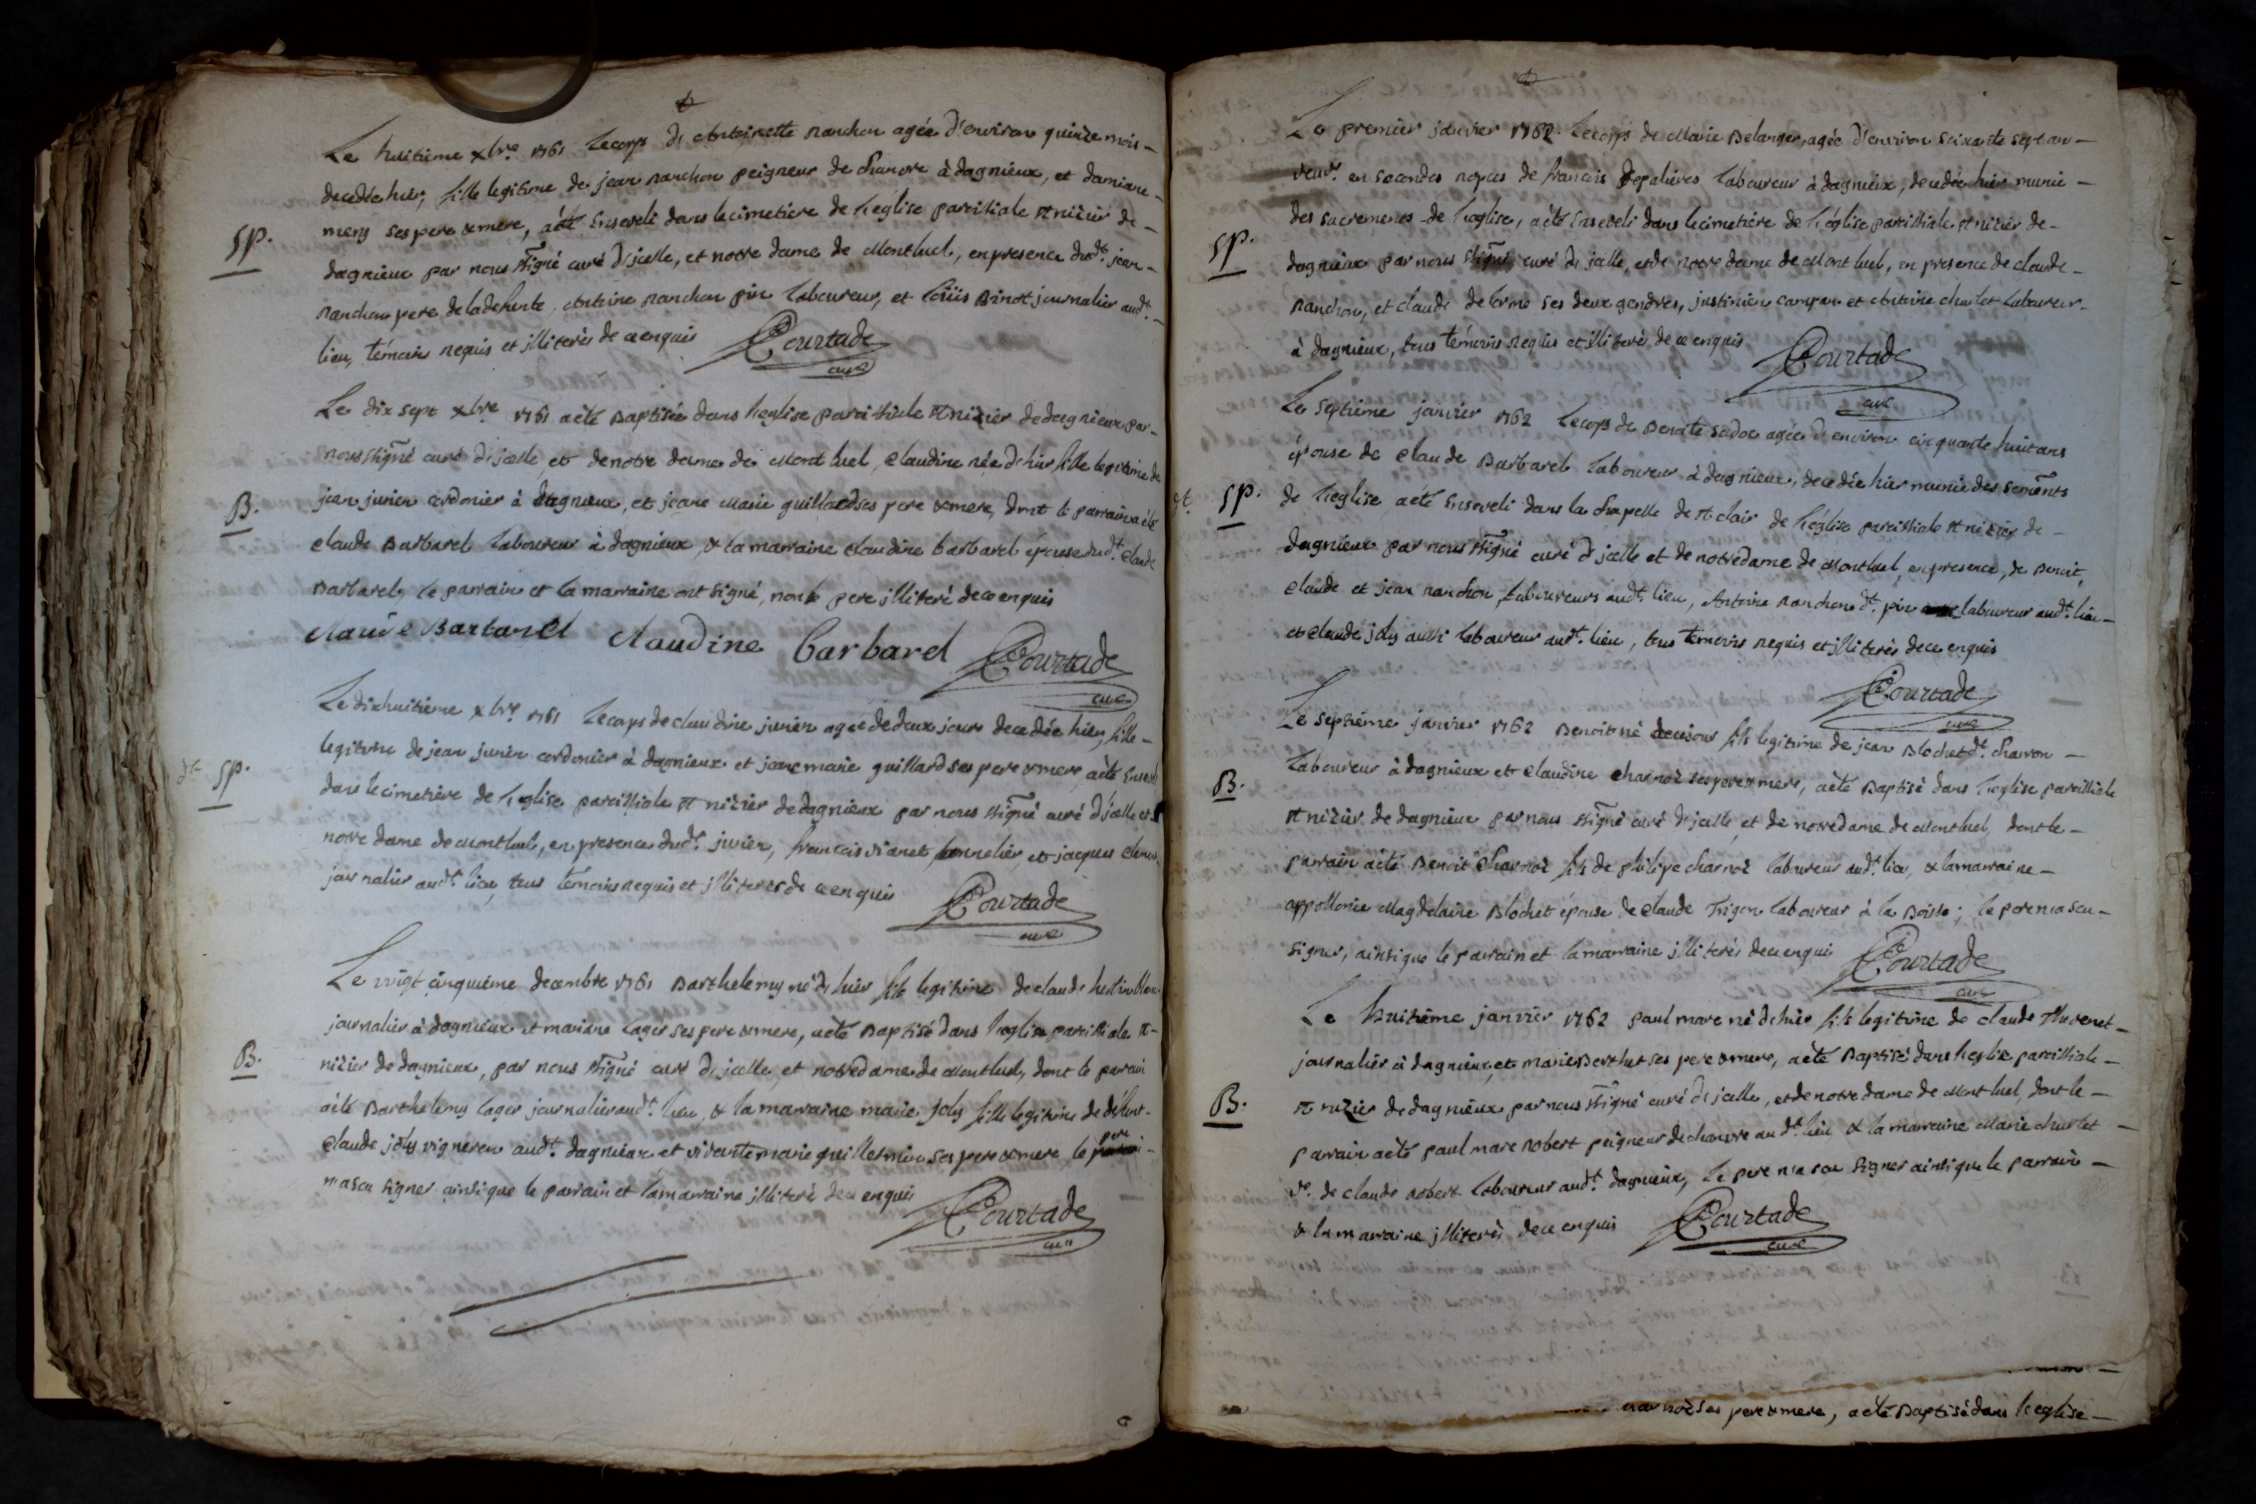 Le huitième xbre 1761 le corps de Antoinette nanchon agée d'environ quinze mois –
decedée hier, fille legitime de jean nanchon peigneur de chanvre à dagnieux, et damiane –
meny ses pere & mere, a été Enseveli dans le cimetiere de l'eglise paroissiale st nizier de –
Sp.
dagnieux par nous ssigné curé d'jcelle, et notre dame de Montluel, en presence dudt. jean –
nanchon pere de la defunte, Antoine nanchon pin laboureur, et loüis Binot journalier audt. –
lieu, témoins requis et jlliterés de ce enquis
Courtade
curé
Le dix sept xbre 1761 a été Baptisée dans l'eglise paroissiale st nizier de dagnieux par –
nous ssigné curé d'jcelle et de notre dame de Mont luel, Claudine née d'hier fille legitime de
jean junien cordonier à dagnieux, et jeane Marie guillard ses pere & mere, dont le parrain a été
B.
Claude Barbarel laboureur à dagnieux, & la marraine Claudine barbarel épouse dudt. Claude
Barbarel, le parrain et la marraine ont signé, non le pere jlliteré de ce enquis
Claude Barbarel Claudine barbarel Courtade
curé
Le dixhuitième xbre 1761 le corps de claudine junien agée de deux jours decedée hier, fille –
legitime de jean junien cordonier à dagnieux et jeane marie guillard ses pere & mere, a été Enseveli
dt. Sp.
dans le cimetière de l'eglise paroissiale st nizier de dagnieux par nous ssigné curé d'jcelle et
notre dame de Montluel, en presence dudt. junien, francois vianet tonnelier, et jacques
journalier audt. lieu, tous témoins requis et jlliterés de ce enquis
Courtade
curé
Le vingt cinquième decembre 1761 Barthelemy né d'hier fils legitime de claude
journalier à dagnieux et mariane lager ses pere & mere, a été Baptisé dans l'eglise paroissiale st –
B.
nizier de dagnieux, par nous ssigné curé d'jcelle et notre dame de Montluel, dont le parrain
a été Barthelemy lager journalier audt. lieu, & la marraine marie joly fille legitime de défunt –
Claude joly vigneron audt. dagnieux et vivante marie guillermin ses pere & mere, le pere
n'a scu signer ainsi que le parrain et la marraine jlliteré de ce enquis
Courtade
curé
Le premier janvier 1762. le corps de Marie Belanger, agée d'environ soixante sept ans –
veuve en secondes nopces de francois Depalières laboureur à dagnieux, decedée hier munie –
des sacrements de l'eglise, a été Enseveli dans le cimetière de l'église paroissiale st nizier de –
Sp.
dagnieux par nous ssigné curé d'jcelle, et de notre dame de Mont luel, en presence de claude –
nanchon, et claude delorme ses deux gendres, justinien campan et Antoine charlet laboureur –
à dagnieux, tous témoins requis et jlliteré de ce enquis
Courtade
curé
Le septième janvier 1762 le corps de Benoite sadoc agée d'environ cinquante huit ans
épouse de Claude Barbarel laboureur à dagnieux, decedée hier munie des scments
dt. Sp.
de l'eglise a été Enseveli dans la chapelle de st clair de l'église paroissiale st nizier de –
dagnieux par nous ssigné curé d'jcelle et de notre dame de Montluel, en presence, de Benoit,
Claude et jean nanchon, laboureurs audt. lieu, Antoine nanchon dt. pin laboureur audt. lieu –
et claude joly aussi laboureur audt. lieu, tous témoins requis et jlliterés de ce enquis
Courtade
curé
Le septième janvier 1762 Benoit né de ce jour fils legitime de jean Blochet dt. charron –
B.
laboureur à dagnieux et claudine charnoz ses pere & mere, a été Baptisé dans l'eglise paroissiale
st nizier de dagnieux par nous ssigné curé d'jcelle, et de notre dame de Montluel, dont le –
parrain a été Benoit Charnoz fils de philipe charnoz laboureur audt. lieu, & la marraine –
appollonie Magdelaine Blochet épouse de claude Trigon laboureur à la Boisse ; le pere n'a scu –
signer, ainsi que le parrain et la marraine jlliterés de ce enquis
Courtade
curé
Le huitième janvier 1762 paul marc né d'hier fils legitime de claude Thevenet –
journalier à dagnieux, et marie Berthet ses pere & mere, a été Baptisé dans l'eglise paroissiale –
B.
st nizier de dagnieux par nous ssigné curé d'jcelle, et de notre dame de Mont luel, dont le –
parrain a été paul marc Robert peigneur de chanvre audt. lieu & la marraine Marie charlet –
ve. de claude Robert laboureur audt. dagnieux, le pere n'a scu signer ainsi que le parrain –
& la marraine jlliterés de ce enquis
Courtade
curé
charnoz ses pere & mere, a été Baptisé dans l'eglise –